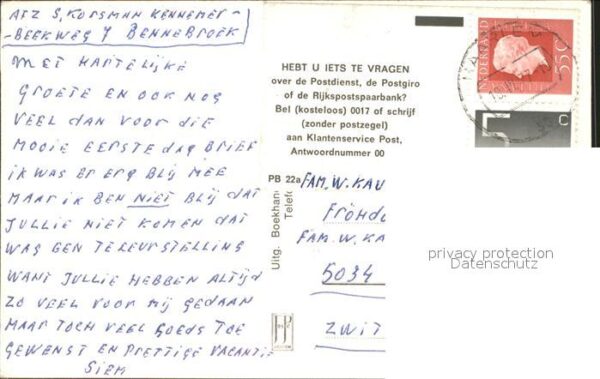 AFZ S, KORSMAN KENNEMER-
-BEEKWEG 7 BENNEBROEK
MET HARTELIJKE
GROETE EN OOK NOG
VEEL DAN VOOR DIE
MOOIE EERSTE DAG BRIEF
IK WAS ER ERG BLIJ MEE
MAAR IK BEN NIET BLIJ DAT
JULLIE NIET KOMEN DAT
WAS GEN TELEURSTELLING
WANT JULLIE HEBBEN ALTIJD
ZO VEEL VOOR MIJ GEDAAN
MAAR TOCH VEEL GOEDS TOE
GEWENST EN PRETTIGE VACANTIE
SIEM
HEBT U IETS TE VRAGEN
over de Postdienst, de Postgiro
of de Rijkspostspaarbank?
Bel (kosteloos) 0017 of schrijf
(zonder postzegel)
aan Klantenservice Post,
Antwoordnummer 00
PB 22a
Uitg. Boekhan
Telef
FAM. W. KAU
FRÖHD
FAM. W. KA
5034
ZWIT
NEDERLAND
55C
5
C
privacy protection
Datenschutz